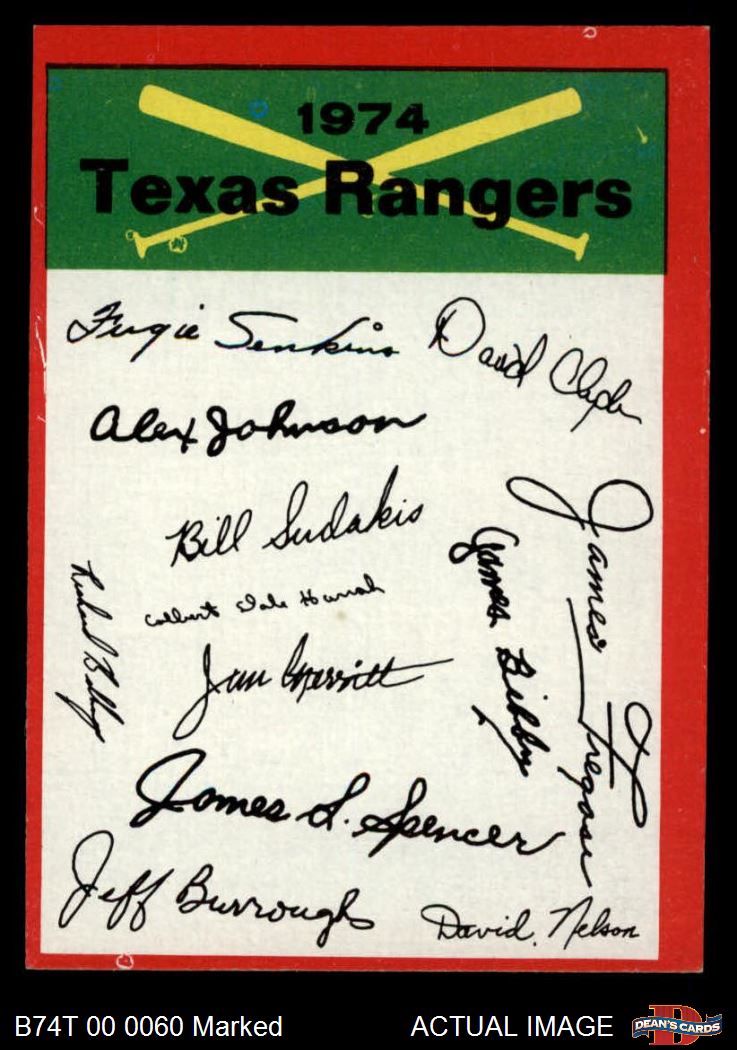 1974
Texas Rangers
Fergie Jenkins
David Clyde
Alex Johnson
Bill Sudakis
James Fregosi
James Bibby
Richard Billings
Jim Merritt
James L. Spencer
Jeff Burroughs
David. Nelson
B74T 00 0060 Marked
ACTUAL IMAGE
DEAN'S CARDS